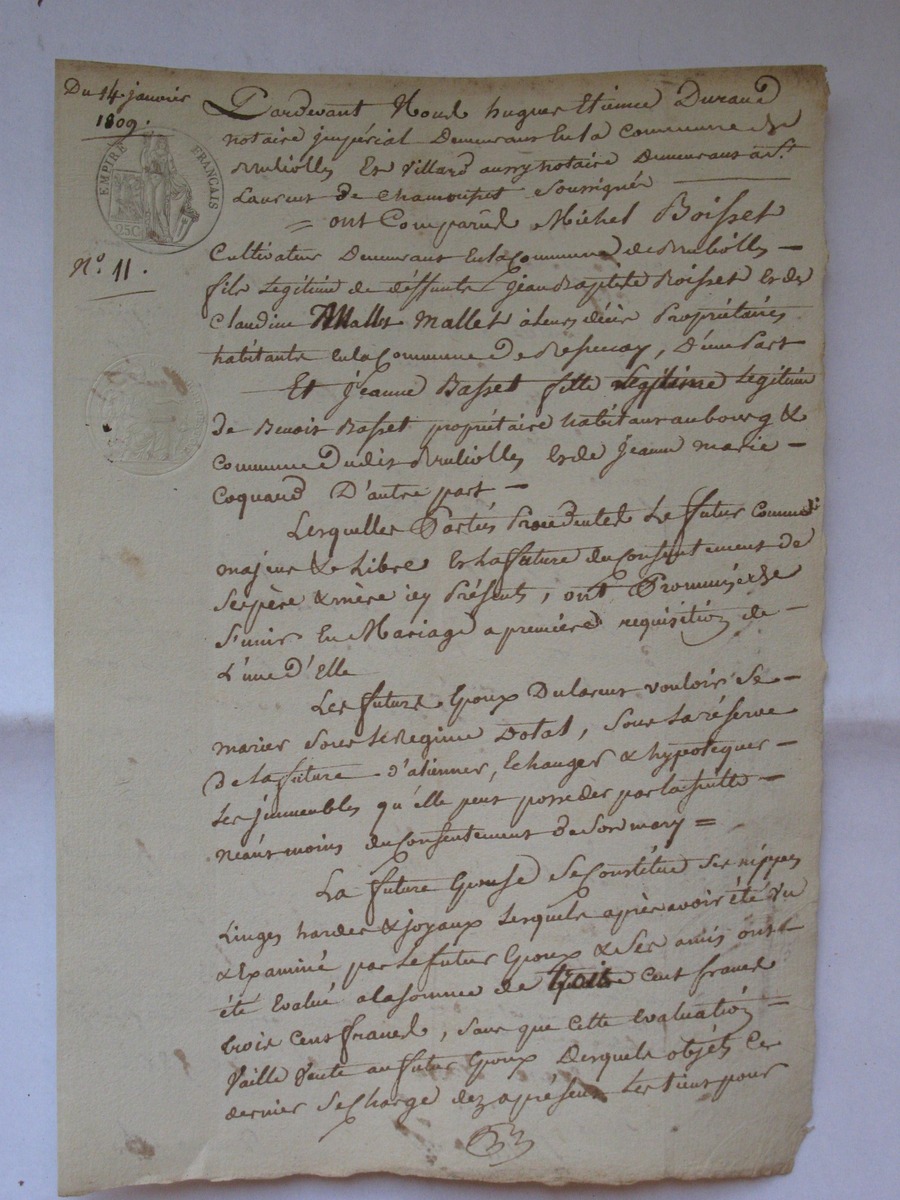 Du 14 janvier
1809.
EMPIRE FRANÇAIS
25C
N.º 11.
Pardevant Nous hugues Etienne Durand
notaire jmpérial Demeurant En la Commune de
Brulliolles Et Villard aussy notaire Demeurant a St
Laurent de Chamousset Soussignés
= ont Comparus Michel Boisset
Cultivateur Demeurant En la Commune de Brulliolles —
fils Legitime de deffunts Jean Baptiste Boisset et de
Claudine Mallet à leurs décès Propriétaires
habitants En la Commune De , D'une Part
— Et Jeanne Basset fille Legitime Legitime
de Benoit Basset propriétaire habitant au bourg &
Commune Dudit Brulliolles et de Jeanne marie —
Coquard D'autre part —
Lesquelles Parties Procedentes Le futur Comme
majeur & Libre Et La future du Consentement de
Ses père & mère icy Présents, ont Promis de
S'unir En Mariage a première requisition de —
L'une D'Elle
Les futurs Epoux Declarent vouloir Se —
marier Sous Le Regime Dotal, Sous La réserve
De La future d'aliener, Echanger & hypotequer —
Les jmmeubles qu'elle peut posseder par la suitte —
néantmoins du Consentement de Son mary =
La future Epouse Se Constitue Ses nippes
Linges hardes & joyaux Lesquels après avoir été vu
& Examiné par Le futur Epoux & Ses amis ont
été Evalué a la somme de Cent francs
trois Cent francs, Sans que Cette Evaluation —
Vaille Vente au futur Epoux Desquels objets Ce
dernier Se Charge dez a présent Les tient pour